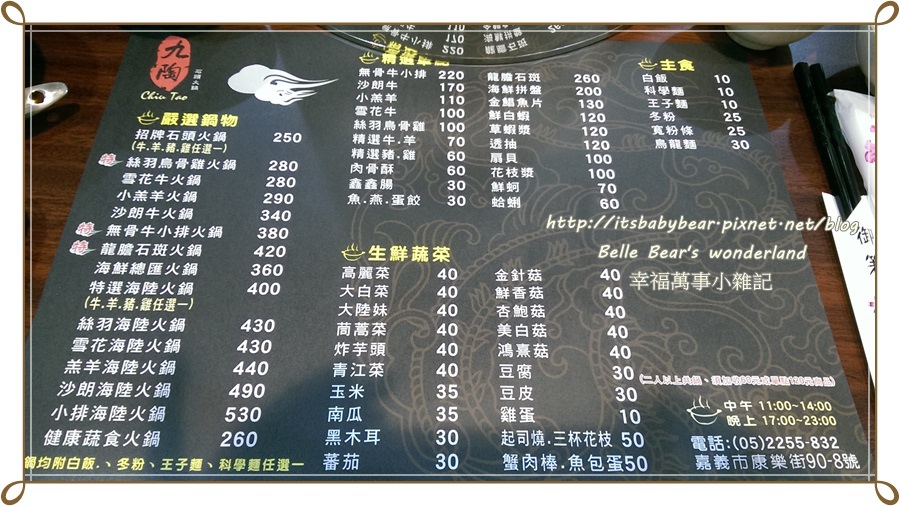 九陶
石頭火鍋
Chiu Tao
嚴選鍋物
招牌石頭火鍋 250
(牛.羊.豬.雞任選一)
絲羽烏骨雞火鍋 280
雪花牛火鍋 280
小羔羊火鍋 290
沙朗牛火鍋 340
無骨牛小排火鍋 380
龍膽石斑火鍋 420
海鮮總匯火鍋 360
特選海陸火鍋 400
(牛.羊.豬.雞任選一)
絲羽海陸火鍋 430
雪花海陸火鍋 430
羔羊海陸火鍋 440
沙朗海陸火鍋 490
小排海陸火鍋 530
健康蔬食火鍋 260
鍋均附白飯.、冬粉、王子麵、科學麵任選一
無骨牛小排 220
沙朗牛 170
小羔羊 110
雪花牛 100
絲羽烏骨雞 100
精選牛.羊 70
精選豬.雞 60
肉骨酥 60
鑫鑫腸 30
魚.燕.蛋餃 30
龍膽石斑 260
海鮮拼盤 200
金鯧魚片 130
鮮白蝦 120
草蝦漿 120
透抽 120
扇貝 100
花枝漿 100
鮮蚵 70
蛤蜊 60
主食
白飯 10
科學麵 10
王子麵 10
冬粉 25
寬粉條 25
烏龍麵 30
生鮮蔬菜
高麗菜 40
大白菜 40
大陸妹 40
茼蒿菜 40
炸芋頭 40
青江菜 40
玉米 35
南瓜 35
黑木耳 30
蕃茄 30
金針菇 40
鮮香菇 40
杏鮑菇 40
美白菇 40
鴻熹菇 40
豆腐 30
豆皮 30
雞蛋 10
起司燒.三杯花枝 50
蟹肉棒.魚包蛋50
http://itsbabybear.pixnet.net/blog
Belle Bear's wonderland
幸福萬事小雜記
中午 11:00~14:00
晚上 17:00~23:00
電話:(05)2255-832
嘉義市康樂街90-8號